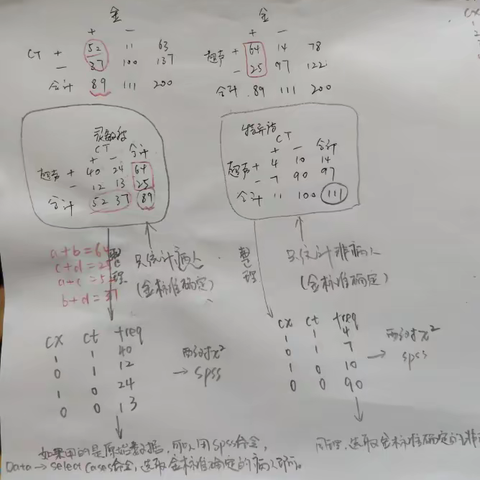 金
+ -
CT + 52 11 63
- 37 100 137
合计 89 111 200
金
+ -
超声 + 64 14 78
- 25 97 122
合计 89 111 200
灵敏度
CT
+ - 合计
超声 + 40 24 64
- 12 13 25
合计 52 37 89
特异度
CT
+ - 合计
超声 + 4 10 14
- 7 90 97
合计 11 100 111
a+b=64
c+d=25
a+c=52
b+d=37
整理
只统计病人
(金标准确定)
整理
只统计非病人
(金标准确定)
cx ct freq
1 1 40
0 1 12
1 0 24
0 0 13
配对χ²
→ spss
cx ct freq
1 1 4
0 1 7
1 0 10
0 0 90
配对χ²
→ spss
如果用的是原始数据,可以用spss命令,
Data → select Cases命令,选取金标准确定的病人即可。
同理,选取金标准确定的非
cx